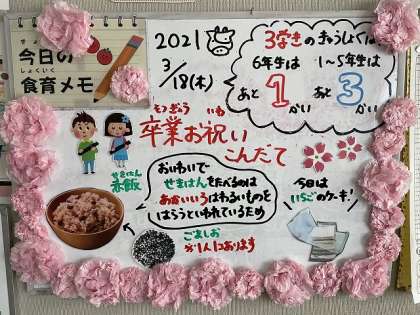 今日の
しょくいく
食育メモ
2021
3/18(木)
3学きのきゅうしょくは
6年生は
あと
1
かい
1～5年生は
あと
3
かい
そつぎょう いわ
卒業お祝い
こんだて
せきはん
赤飯
おいわいで
せきはんをたべるのは
あかいいろはわるいものを
はらうといわれているため
ごましお
が1人に1つあります
今日は
いちごのケーキ!